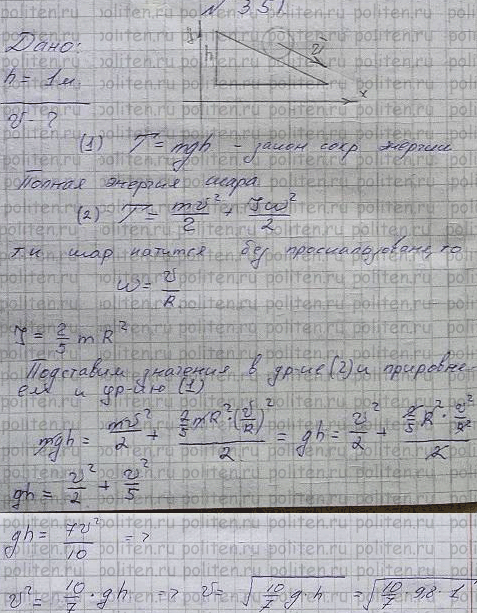 N 3.51.
Дано:
h = 1м
v - ?
y
h
v
x
(1) T = mgh - закон сохр энергии
Полная энергия шара.
(2) T = mv²/2 + Jω²/2
т.к шар катится без проскальзование, то
ω = v/R
J = 2/5 mR²
Подставим значения в ур-ие (2) и прировне-
ем к ур-ию (1)
mgh = mv²/2 + (2/5 mR² · (v/R)²)/2 = gh = v²/2 + (2/5 R² · v²/R²)/2
gh = v²/2 + v²/5
gh = 7v²/10 = ?
v² = 10/7 · gh => v = √(10/7 g · h) = √(10/7 · 9,8 · 1